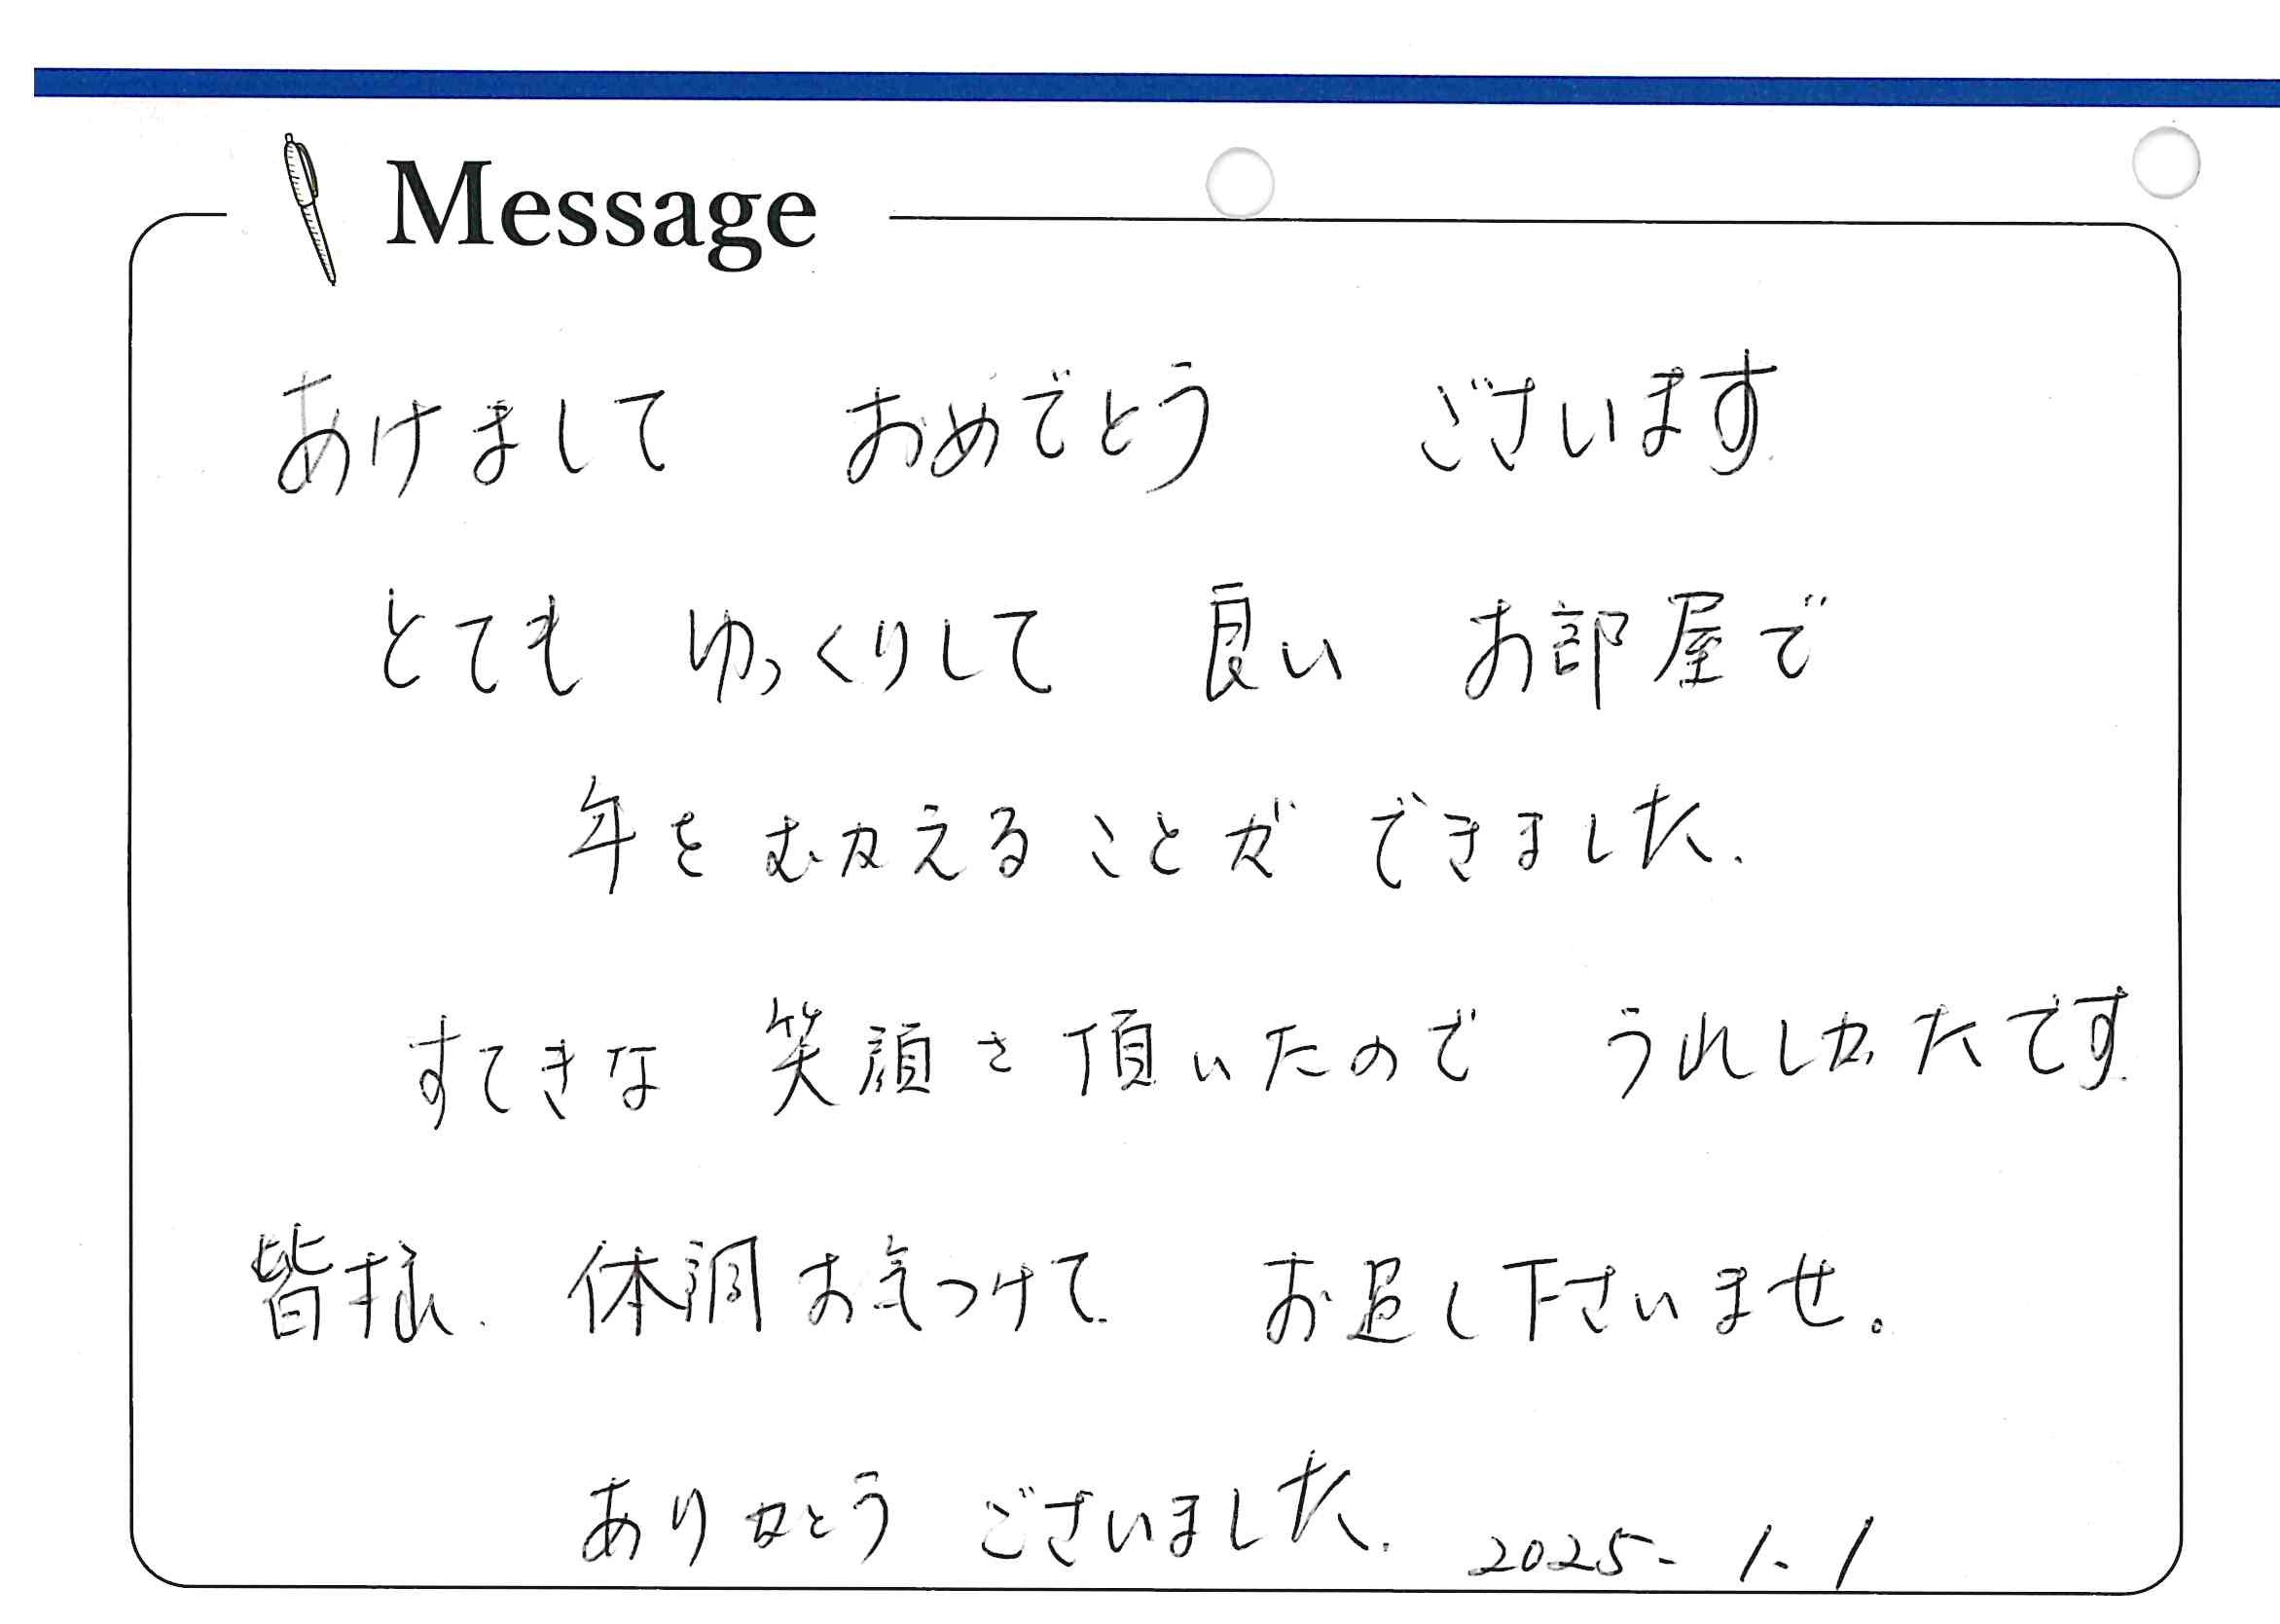 Message
あけまして おめでとう ございます
とても ゆっくりして 良い お部屋で
年を むかえることが できました.
すてきな 笑顔を頂いたので うれしかったです.
皆様. 体調お気つけて. お過し下さいませ。
ありがとう ございました. 2025-1.1